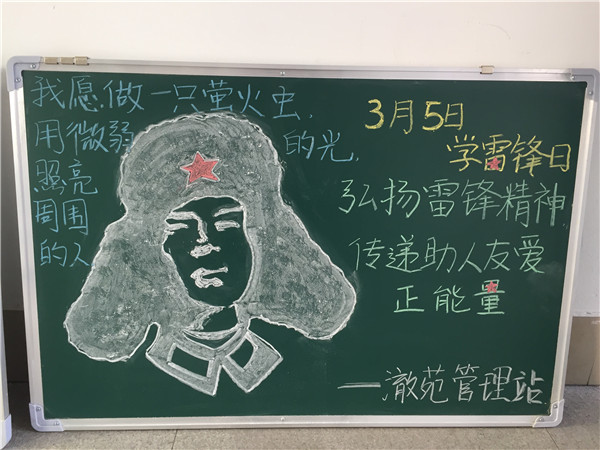 我愿做一只萤火虫,
用微弱的光,
照亮
周围
的人
3月5日
学雷锋日
弘扬雷锋精神
传递助人友爱
正能量
—澈苑管理站